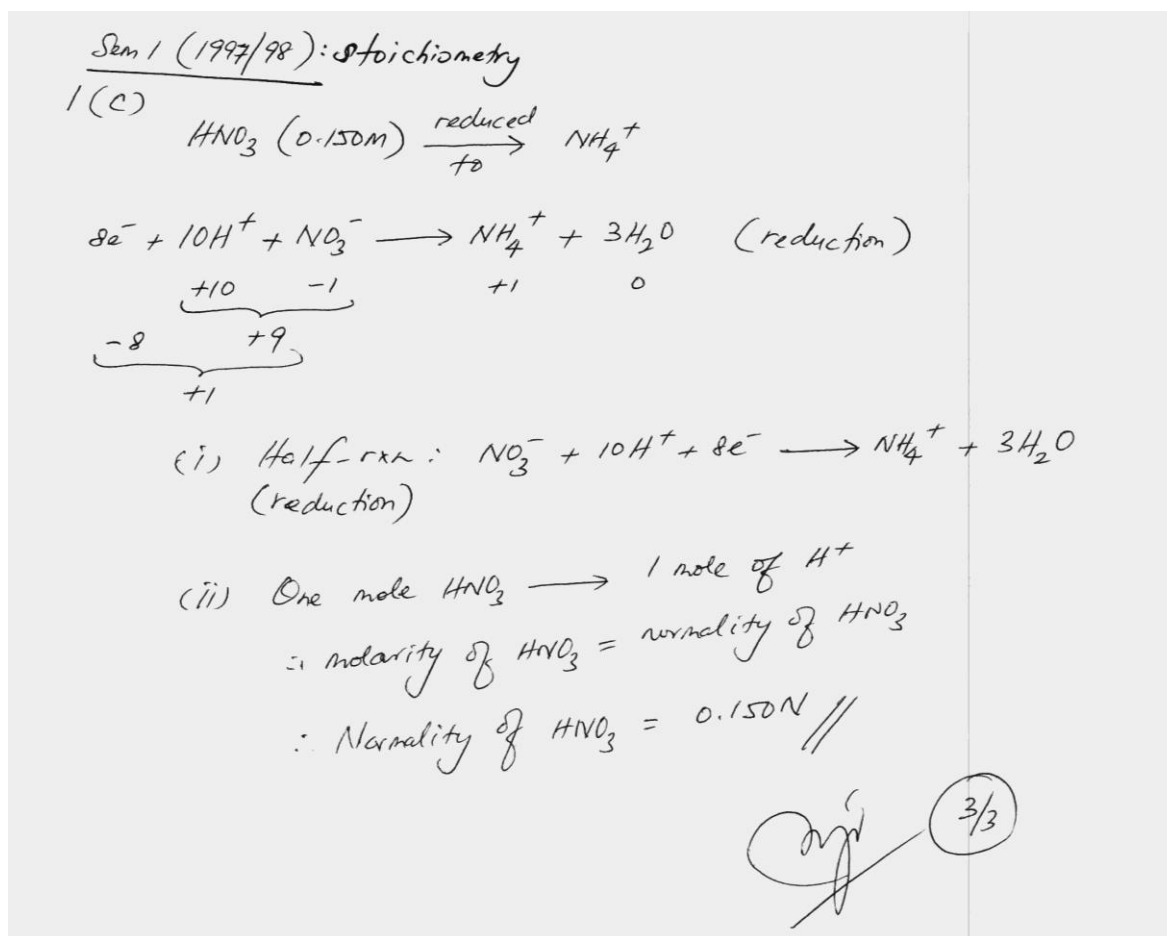 Sem 1 (1997/98): Stoichiometry
1(C)
HNO₃ (0.150M) reduced to → NH₄⁺
8e⁻ + 10H⁺ + NO₃⁻ → NH₄⁺ + 3H₂O (reduction)
+10 -1 +1 0
-8 +9
+1
(i) Half-rxn: NO₃⁻ + 10H⁺ + 8e⁻ → NH₄⁺ + 3H₂O
(reduction)
(ii) One mole HNO₃ → 1 mole of H⁺
∴ molarity of HNO₃ = normality of HNO₃
∴ Normality of HNO₃ = 0.150N //
3/3